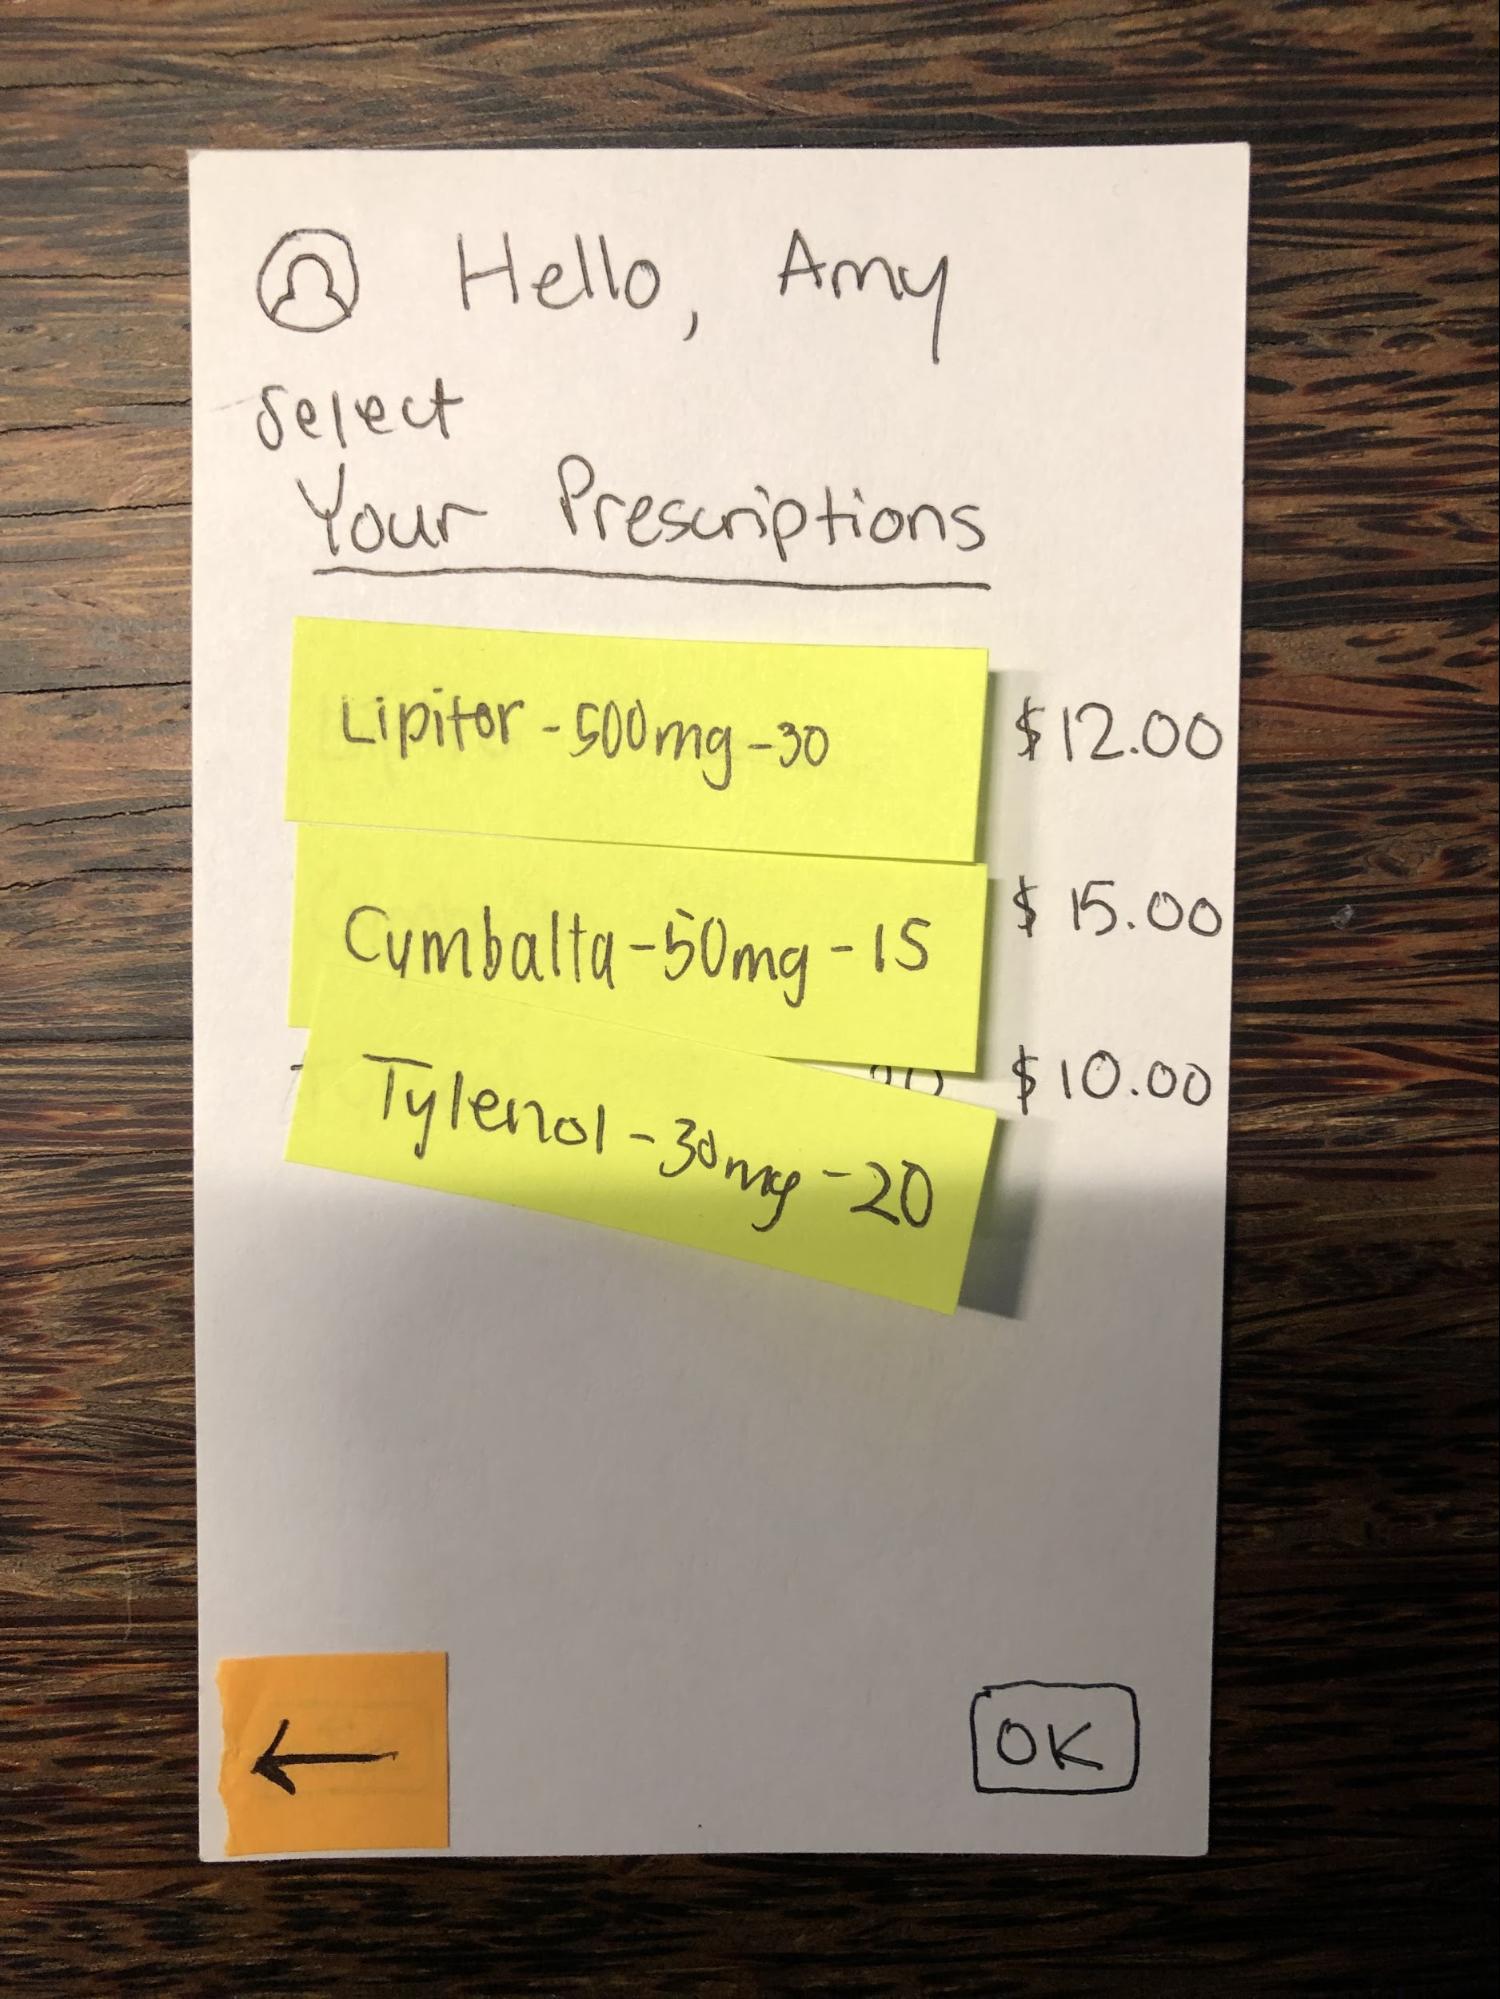 Hello, Amy
Select
Your Prescriptions
Lipitor - 500mg - 30 $12.00
Cymbalta - 50mg - 15 $ 15.00
Tylenol - 30mg - 20 $10.00
OK